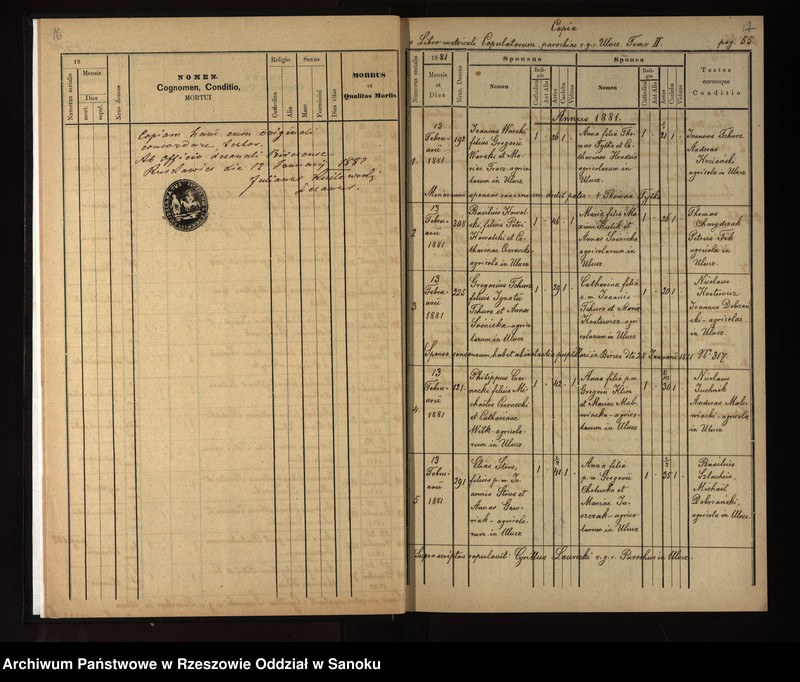 16
18
Numerus serialis
Mensis
Dies
mort.
sepul.
Nrus domus
NOMEN.
Cognomen, Conditio,
MORTUI
Religio
Catholica
Alia
Sexus
Masc
Feminini
Dies vitae
MORBUS
et
Qualitas Mortis
Copiam hanc cum originali
concordare, testor.
Ab officio decanali Bircense
die 12 Januarii 1882
Julianus
Decanus.
17
Copia
e Libro metricali Copulatorum, parochiae r.g.c. Ulucz. Tomo II. pag. 55
Numerus serialis
1881
Mensis
et
Dies
Nrus. Domus
Sponsus
Nomen
Religio
Catholica
Aut Alia
Aetas
Caelebs
Viduus
Sponsa
Nomen
Religio
Catholica
Aut Alia
Aetas
Caelebs
Vidua
Testes
eorumque
Conditio
Annus 1881.
1.
13
Februarii
1881
192
Joannes Warcki
filius Gregorii
Warcki et Mariae
agricolarum in Ulucz
1 - 26 1 -
Anna filia Thomae
Fylko et Catharinae
agricolarum in
Ulucz.
1 - 21 1 -
Joannes Tchurz
Andreas
Kociański
agricolae in Ulucz
Minorenni sponsae consensum dedit pater: + Thomas Fylko
2
13
Februarii
1881
308
Basilius Kowalski,
filius Petri
Kowalski et Catharinae
agricola in Ulucz
1 - 46 - 1
Maria filia Maximi
et
Annae Sośnicka
agricolarum in
Ulucz
1 - 26 1 -
Thomas
Charydczak
Petrus Fik
agricolae in
Ulucz.
3
13
Februarii
1881
225
Gregorius Tchurz
filius Ignatii
Tchurz et Annae
Sośnicka agricolarum
in Ulucz
1 - 29 1 -
Catharina filia
p.m. Joannis
Tchurz et Mariae
Kostewicz agricolarum
in Ulucz
1 - 20 1 -
Nicolaus
Kostewicz
Joannes Dobrzański
- agricolae
in Ulucz
Sponsa consensum habet ab instantia pupillari in Bircza dto 28 Januarii 1881 N° 317.
4.
13
Februarii
1881
121
Philippus Czerniecki
filius Michaelis
Czerniecki
et Catharinae
Wilk - agricolarum
in Ulucz
1 - 42 - 1
Anna filia p.m.
Gregorii Klim
et Mariae Malewiacka
- agricolarum
in Ulucz
1 - 30 1 -
Nicolaus
Andreas Malewiacki
- agricolae
in Ulucz
5
13
Februarii
1881
291
Elias
filius p.m. Joannis
et
Annae
- agricolarum
in Ulucz
1 - 41 1 -
Anna filia
p.m. Gregorii
et
Mariae
- agricolarum
in Ulucz
1 - 35 1 -
Basilius
Michaël
Dobrzański,
agricolae in Ulucz
Suprascriptos copulavit: Cyrillus Ławrecki r.g.c. Parochus in Ulucz
Archiwum Państwowe w Rzeszowie Oddział w Sanoku